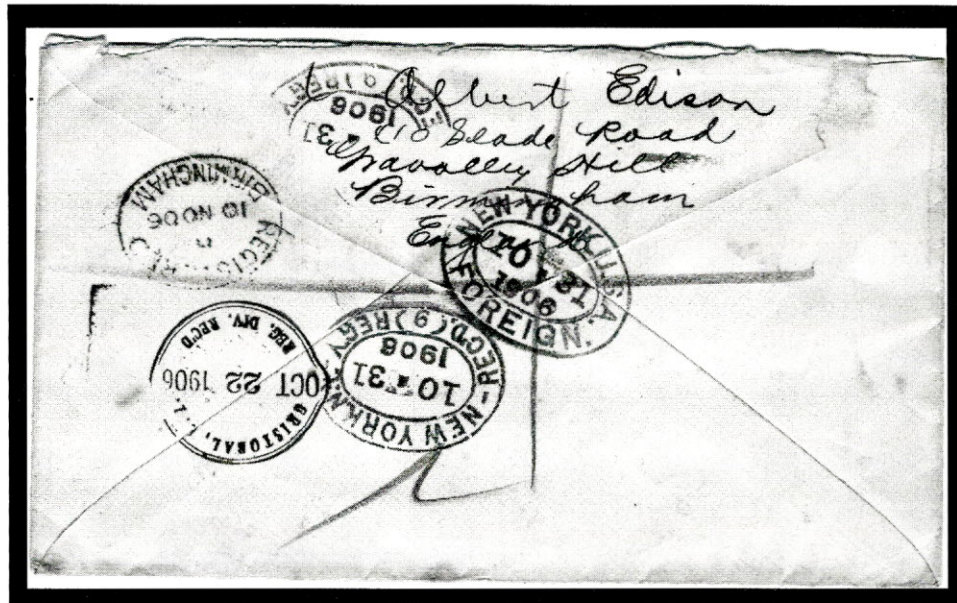 Albert Edison
110 Slade Road
Hill
Birmingham
REGY
1906
31
BIRMINGHAM
10 NO 06
REGISTERED
NEW YORK, U.S.A.
10 31
1906
FOREIGN.
NEW YORK, N.Y. REC'D (9) REGY
10 31
1906
CRISTOBAL, C.Z.
OCT 22 1906
REG. DIV. REC'D